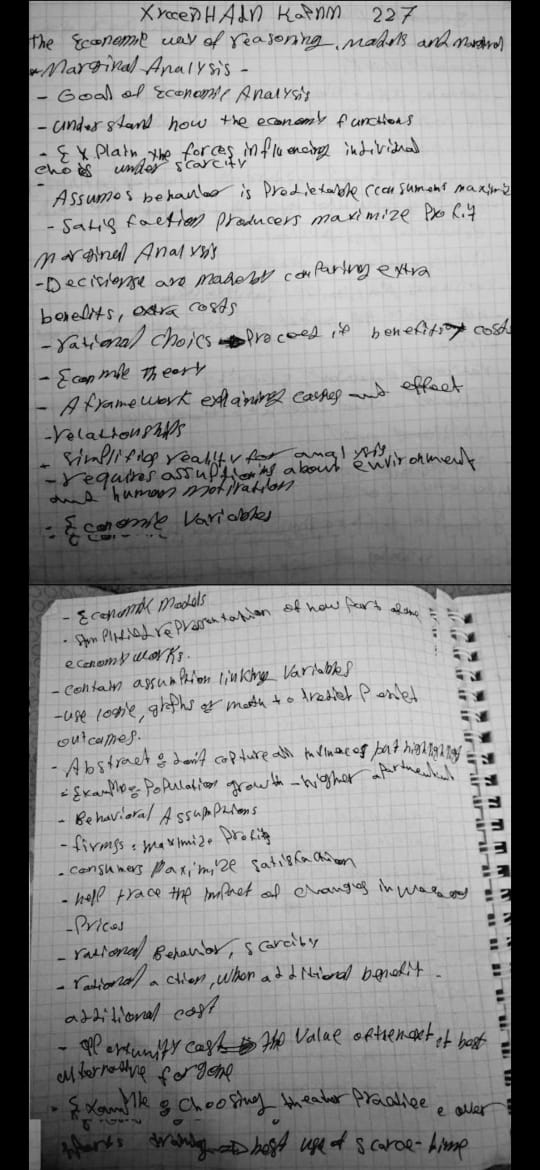 227
The Economic way of reasoning, models and
- Marginal Analysis -
- Goal of Economic Analysis
- understand how the economy functions
- Explain the forces influencing individual
under scarcity
Assumes behavior is Predictable (consumers maximize
- Satisfaction Producers maximize Profit
Marginal Analysis
- Decisions are made by comparing extra
benefits, extra costs
- rational choics → Proceed if benefits > costs
- Economic theory
- A framework explaining causes and effect
- relationships
- Simplifies reality for analysis
- requires assuptions about environment
and human motivation
- Economic Variables
- Economic Models
- simplified representation of how Part of the
economy works.
- contain assumption linking Variables
- use logic, graphs or math to Predict
outcomes.
- Abstract : don't capture all but highlight
- Example: Population growth - higher
- Behavioral Assumptions
- firms : maximize Profit
- consumers maximize satisfaction
- help trace the impact of changes in
- Prices
- rational Behavior, scarcity
- rational action, when additional benefit -
additional cost
- opportunity cost ⇒ The Value of the next best
alternative forgone
- Example : Choosing theater Practice over
⇒ best use of scarce-time